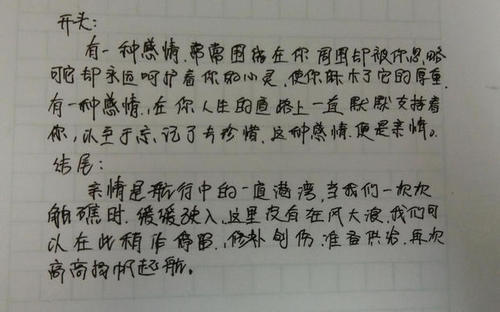 开头:
有一种感情,常常围绕在你周围却被你忽略
可它却永远呵护着你的心灵,使你麻木了它的厚重
有一种感情,在你人生的道路上一直默默支持着
你,以至于忘记了去珍惜,这种感情便是亲情。
结尾:
亲情是航行中的一道港湾,当我们一次次
触礁时,缓缓驶入,这里没有狂风大浪,我们可
以在此稍作停留,修补创伤,准备供给,再次
高高扬帆起航。